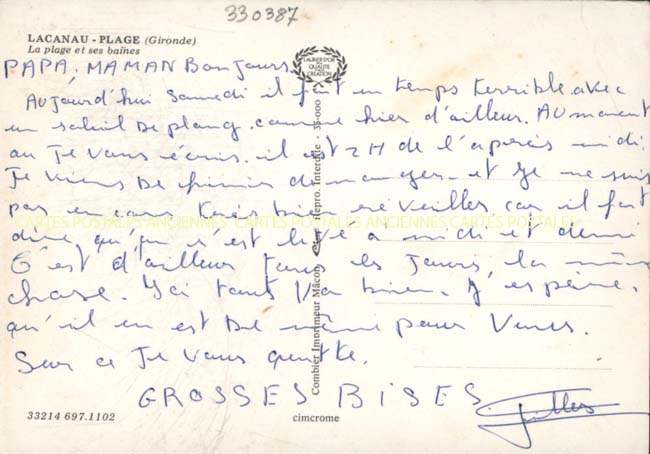 330387
LACANAU - PLAGE (Gironde)
La plage et ses baïnes
LAURIER D'OR
DE LA
QUALITÉ
CRÉATION
PAPA, MAMAN BonJours
AUJourd'hui Samedi il fait un temps terrible avec
un soleil De plong. comme hier d'ailleur. AU moment
ou Je Vous écris. il est 2H de l'aperés midi.
Je Viens De finir de manger. et Je ne suis
pas encore tres bien reveiller car il faut
dire, qu, on s'est levé à midi et demi
C'est d'ailleur tous les Jours, la même
chose. Ici tout Va bien. J'espère,
qu'il en est De même pour Vous.
Sur ce Je Vous quitte.
GROSSES BISES
Gilles
CARTES POSTALES ANCIENNES CARTES POSTALES ANCIENNES CARTES POSTALES
Combier Imprimeur Mâcon
Repro. Interdite - 35-000
33214 697.1102
cimcrome